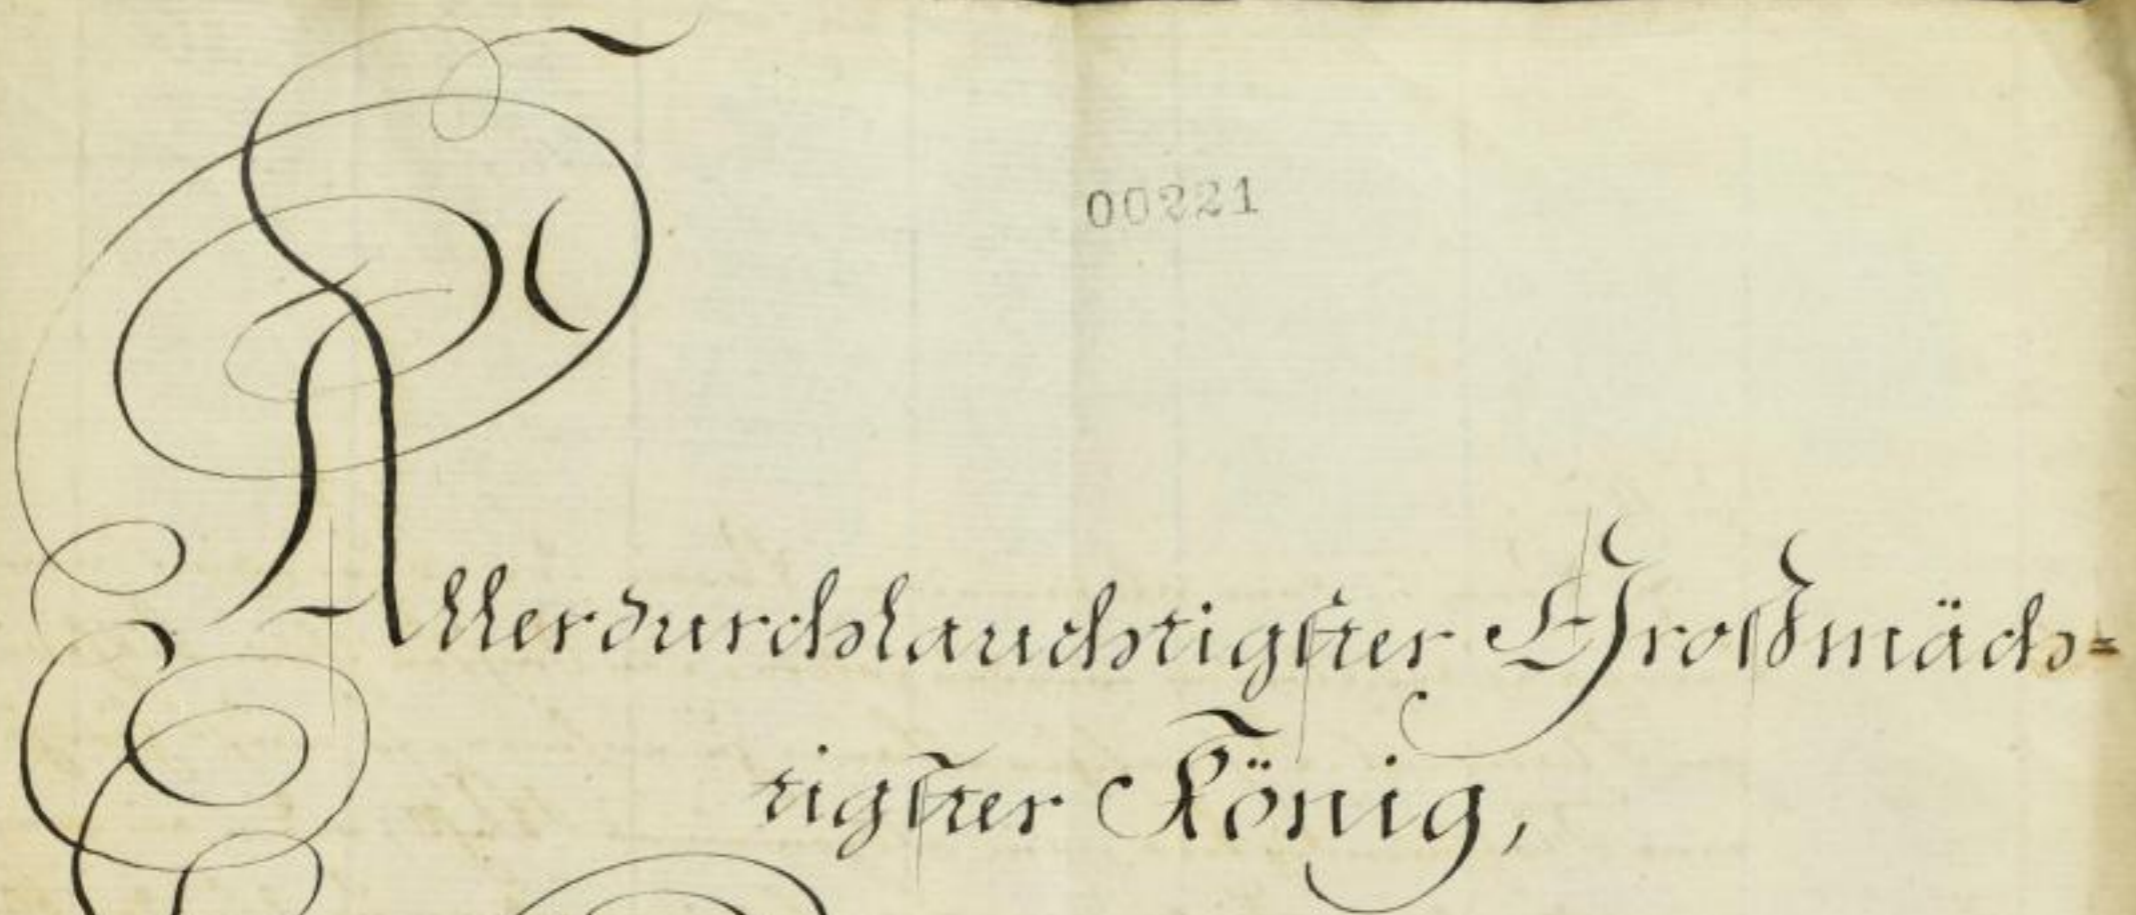 00221
Allerdurchlauchtigster Großmäch=
tigster König,